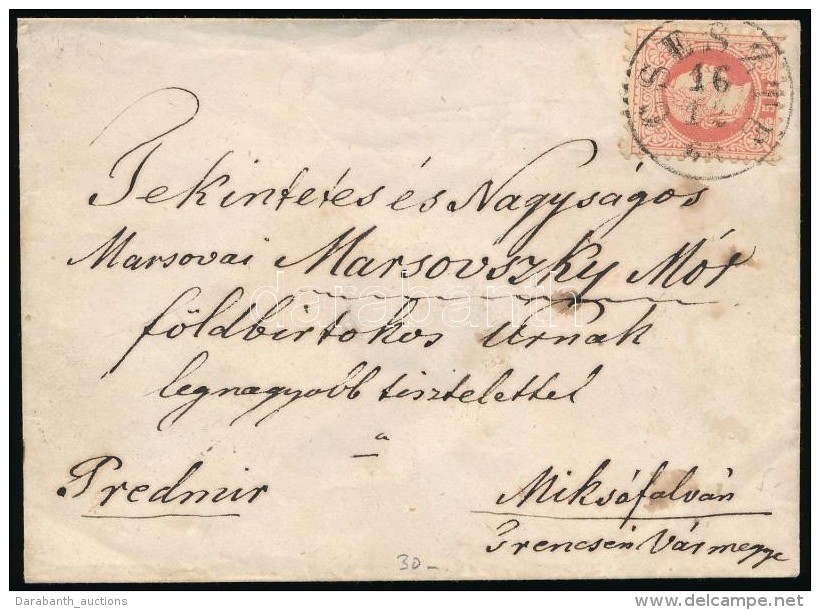 16
Tekintetes és Nagyságos
Marsovai Marsovszky Mór
földbirtokos Urnak
legnagyobb tisztelettel
a
Predmir
Miksófalván
Trencsén Vármegye
30-
darabanth
Darabanth_auctions
www.delcampe.net